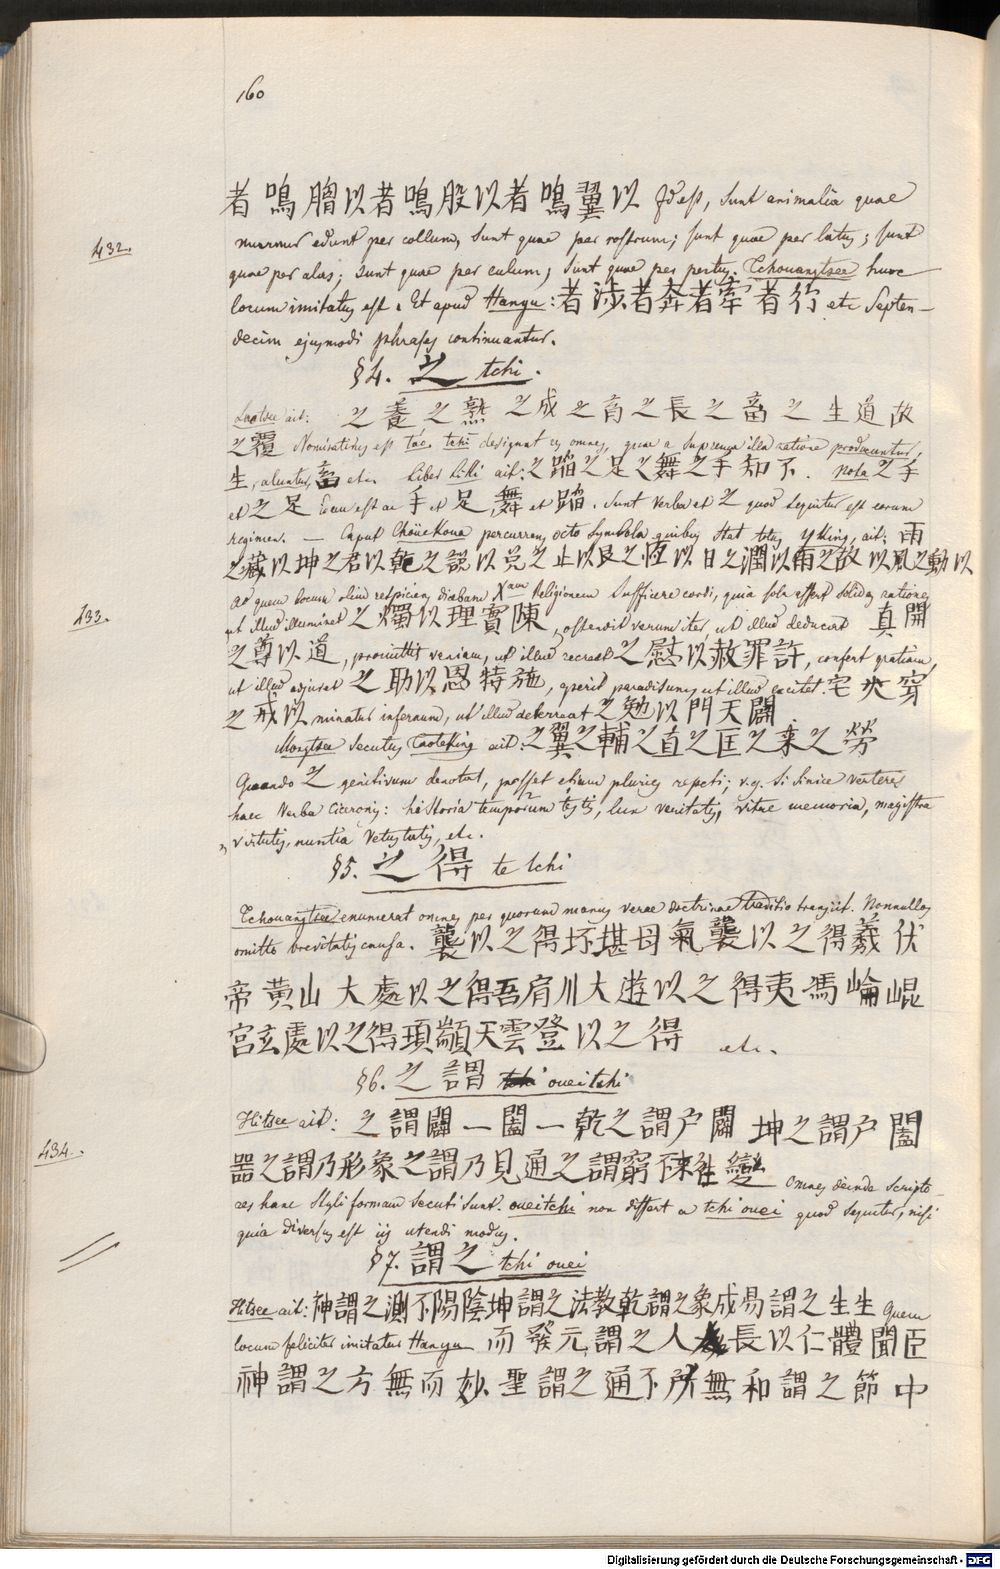 160
者 鳴 膺 以 者 鳴 股 以 者 鳴 翼 以 Id est, sunt animalia quae
432.
murmur edunt per collum, sunt quae per rostrum; sunt quae per latus; sunt
quae per alas; sunt quae per culum; sunt quae per pectus. Tchouangtsee hunc
locum imitatus est. Et apud Hanyu: 者 涉 者 奔 者 牽 者 行 etc Septen-
decim ejusmodi phrases continuantur.
§4. 之 tchi.
Laotsee ait: 之 養 之 熟 之 成 之 育 之 長 之 畜 之 生 道 故
之 覆 Nominativus est táo, tchi designat res omnes, quae a suprema illa ratione producuntur,
生, aluntur, 畜 etc. Liber Liki ait: 之 蹈 之 足 之 舞 之 手 知 不. nota 之 手
et 之 足 Ecce est ac 手 et 足, 舞 et 蹈. Sunt verba et 之 quod sequitur est eorum
regimen. — Caput Choüekoua percurrens octo symbola quibus stat totus Yking, ait: 雨
之 藏 以 坤 之 君 以 乾 之 說 以 兌 之 止 以 艮 之 恆 以 日 之 潤 以 雨 之 散 以 風 之 動 以
Ad quem locum olim respiciens dicebam Xnam Religionem sufficere cordi, quia sola affert solidas rationes
433.
ut illud illuminet 之 燭 以 理 實 陳, ostendit verum iter, ut illud deducat 真 開
之 導 以 道, promittit veniam, ut illud recreet 之 慰 以 赦 罪 許, confert gratiam,
ut illud adjuvet 之 助 以 恩 特 施, aperit paradisum, ut illud excitet. 宅 火 穿
之 戒 以 minatur infernum, ut illud deterreat 之 勉 以 門 天 闢
Mengtsee secutus Chouking ait: 之 翼 之 輔 之 直 之 匡 之 來 之 勞
Quando 之 genitivum denotat, posset etiam pluries repeti; v.g. si sinice verteres
haec verba Ciceronis: historia temporum testis, lux veritatis, vitae memoria, magistra
virtutis, nuntia vetustatis, etc.
§5. 之 得 te tchi
Tchouangtsee enumerat omnes per quorum manus verae doctrinae traditio transiit. Nonnullos
omitto brevitatis causa. 襲 以 之 得 坏 堪 母 氣 襲 以 之 得 羲 伏
帝 黃 山 大 處 以 之 得 吾 肩 川 大 遊 以 之 得 夷 馮 崙 崐
宮 玄 處 以 之 得 頊 顓 天 雲 登 以 之 得 etc.
§6. 之 謂 ouei tchi
Hitsee ait: 之 謂 闢 一 闔 一 乾 之 謂 户 闢 坤 之 謂 户 闔
434.
器 之 謂 乃 形 象 之 謂 乃 見 通 之 謂 窮 不 來 往 變 Omnes deinde scripto-
res hanc styli formam secuti sunt. ouei tchi non differt a tchi ouei quod sequitur, nisi
quia diversus est iis utendi modus.
§7. 謂 之 tchi ouei
Hitsee ait: 神 謂 之 測 不 陽 陰 坤 謂 之 法 教 乾 謂 之 象 成 易 謂 之 生 生 Quem
locum feliciter imitatus Hanyu 而 發 元, 謂 之 人 長 以 仁 體 聞 臣
神 謂 之 方 無 而 妙 聖 謂 之 通 不 所 無 和 謂 之 節 中
Digitalisierung gefördert durch die Deutsche Forschungsgemeinschaft - DFG